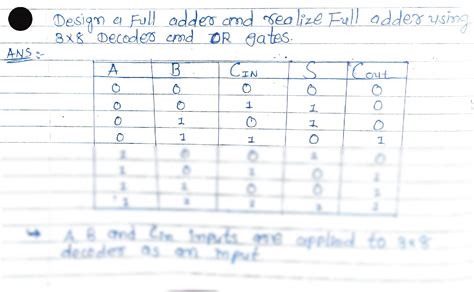 Design a Full adder and realize Full adder using
3x8 Decoder and OR gates.
ANS :-
A B CIN S Cout
0 0 0 0 0
0 0 1 1 0
0 1 0 1 0
0 1 1 0 1
1 0 0 1 0
1 0 1 0 1
1 1 0 0 1
1 1 1 1 1
→ A B and Cin inputs are applied to 3x8
decoder as an input